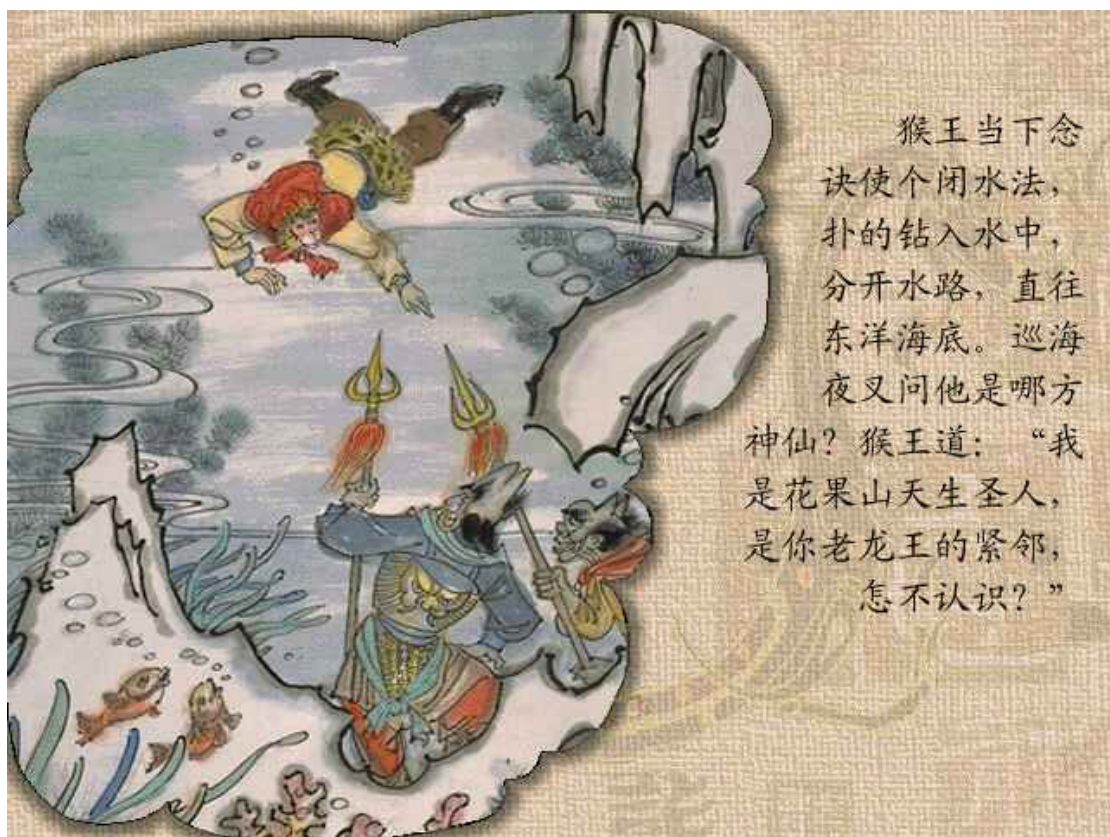 猴王当下念
诀使个闭水法，
扑的钻入水中，
分开水路，直往
东洋海底。巡海
夜叉问他是哪方
神仙？猴王道：“我
是花果山天生圣人，
是你老龙王的紧邻，
怎不认识？”